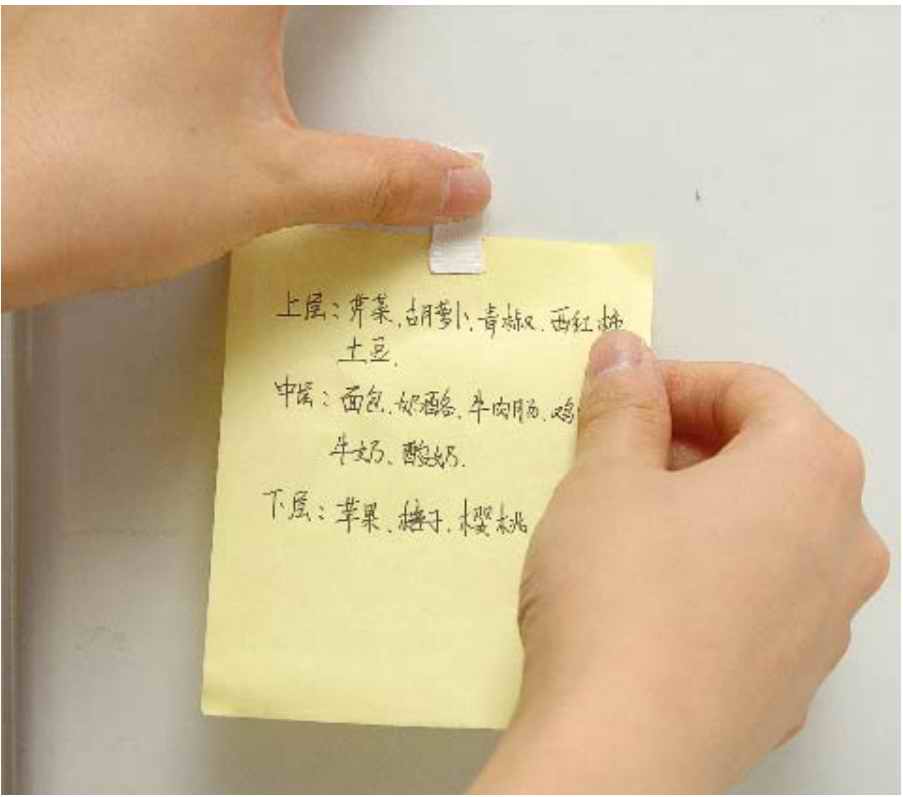 上层：芹菜、胡萝卜、青椒、西红柿
土豆.
中层：面包、奶酪、牛肉肠、鸡
牛奶、酸奶.
下层：苹果、梅子、樱桃